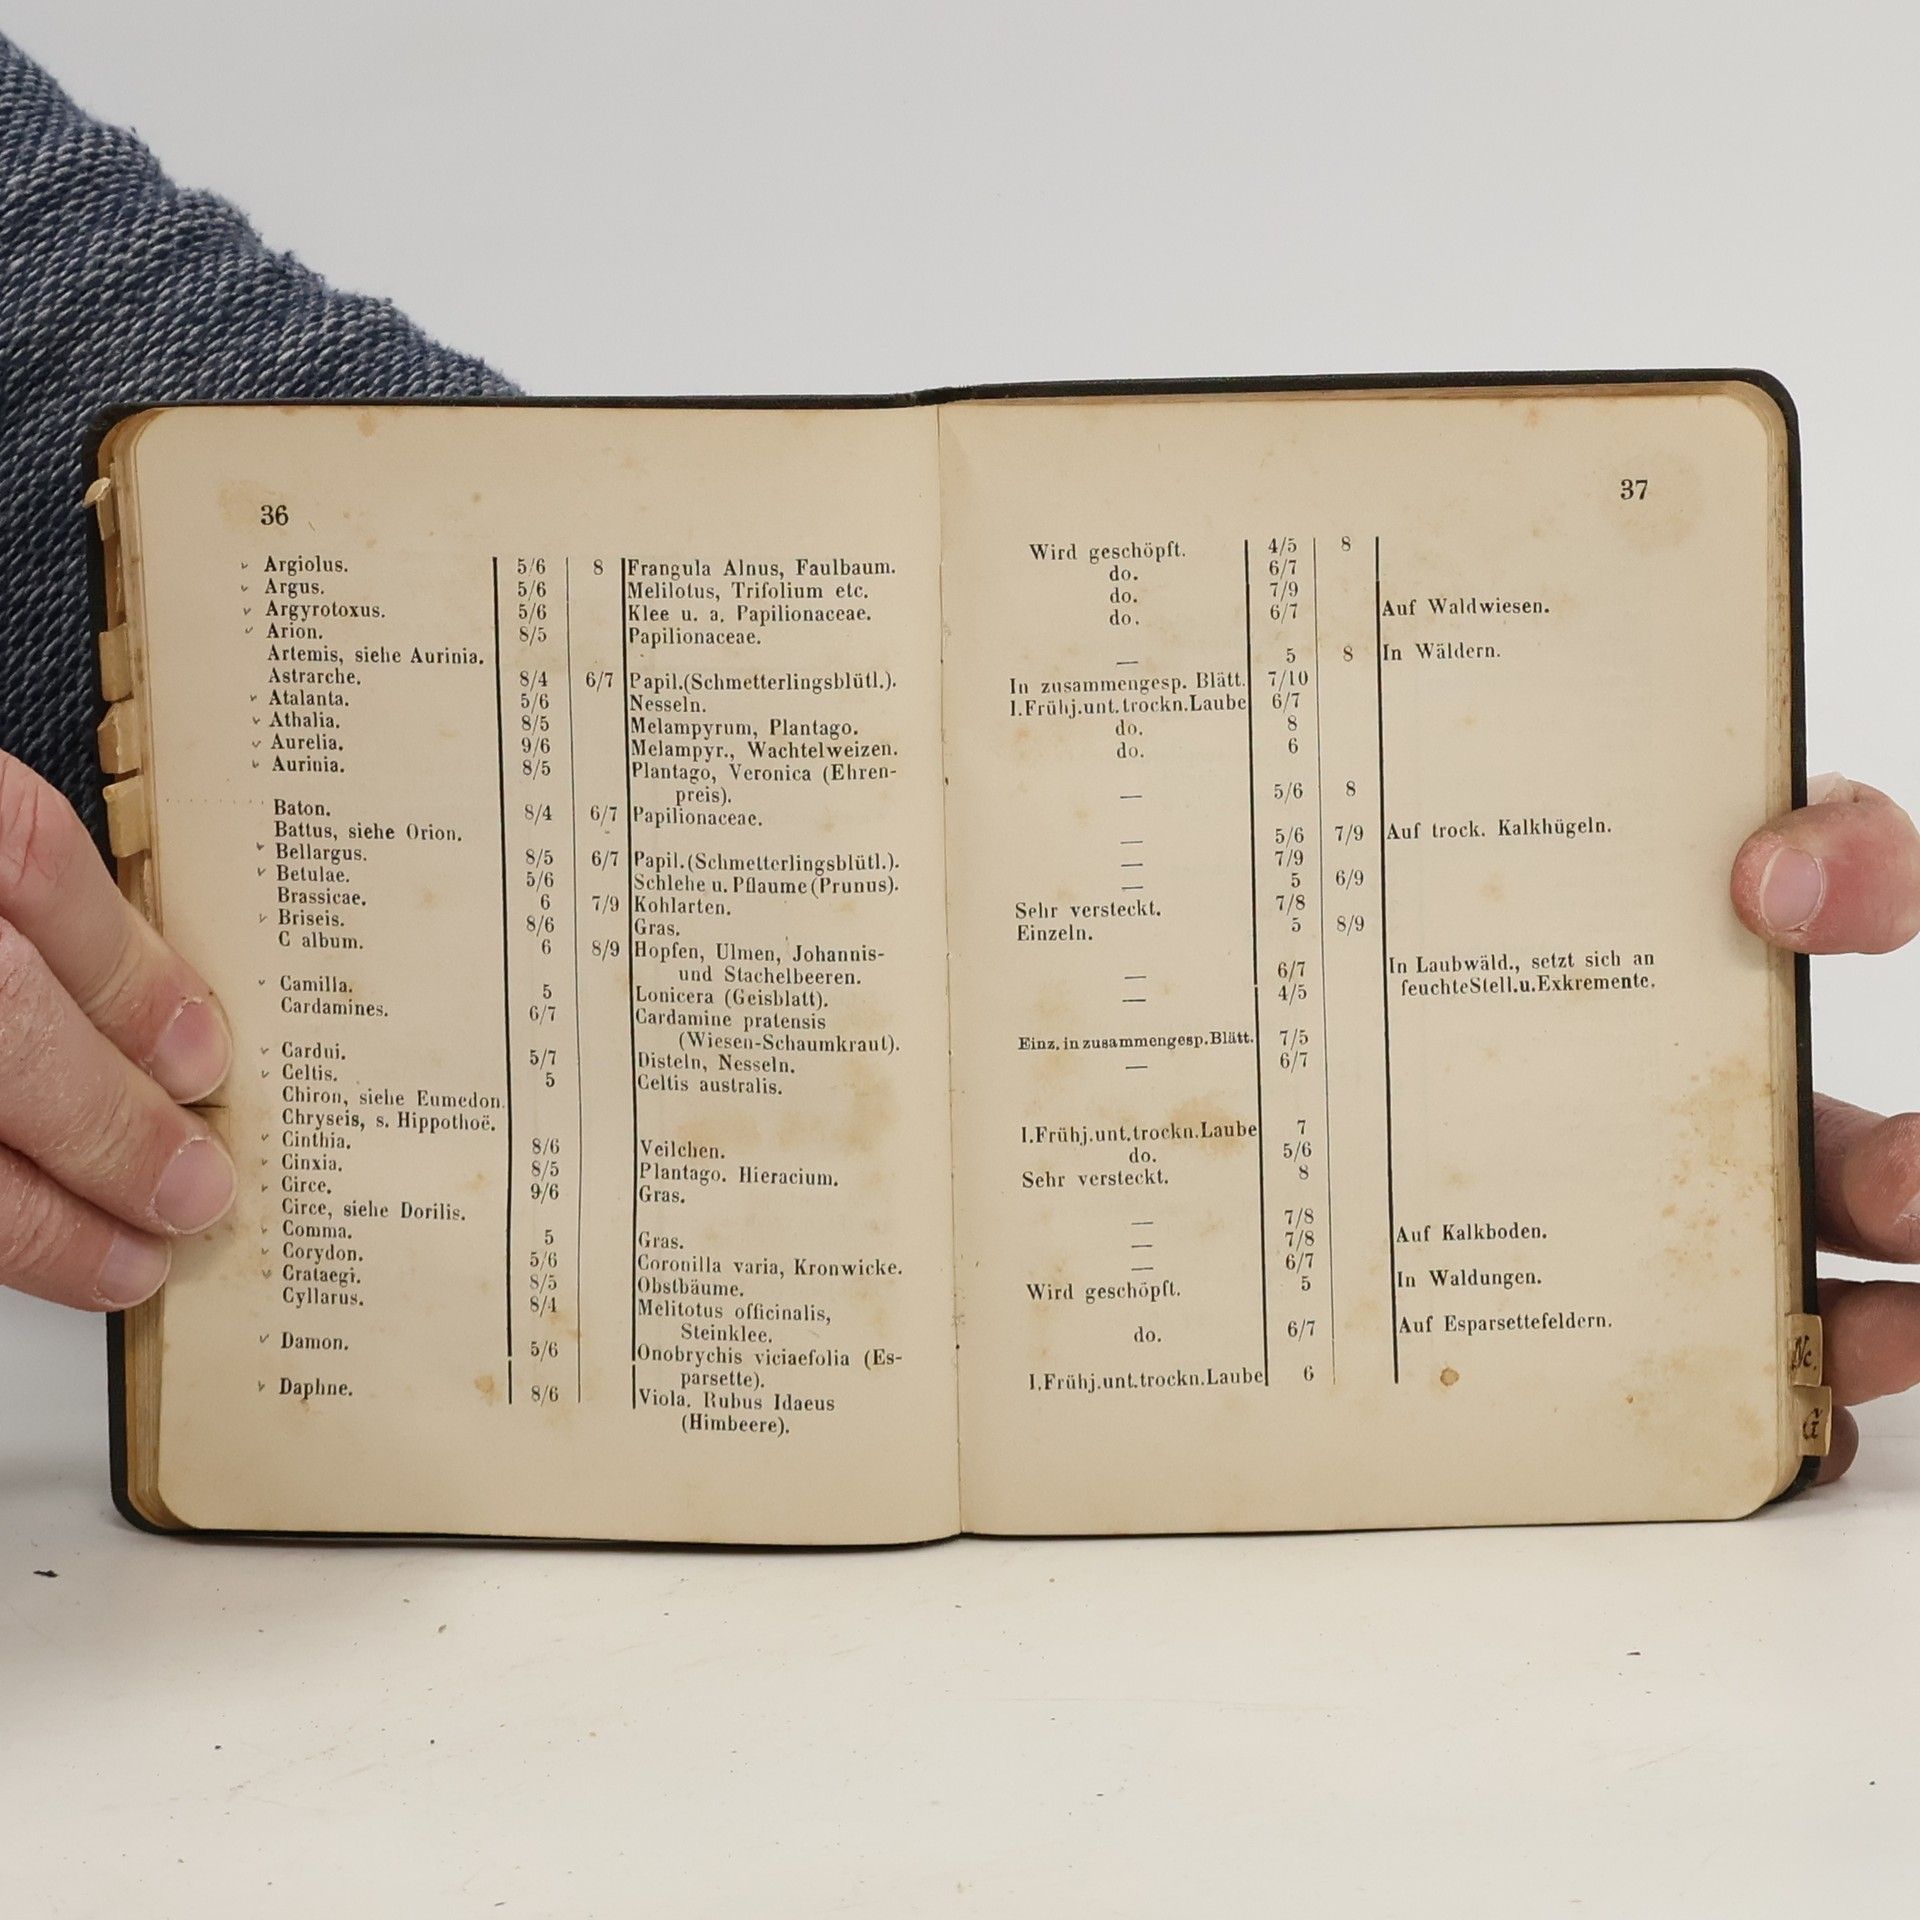 36
Argiolus. 5/6 8 Frangula Alnus, Faulbaum.
Argus. 5/6 Melilotus, Trifolium etc.
Argyrotoxus. 5/6 Klee u. a. Papilionaceae.
Arion. 8/5 Papilionaceae.
Artemis, siehe Aurinia.
Astrarche. 8/4 6/7 Papil.(Schmetterlingsblütl.).
Atalanta. 5/6 Nesseln.
Athalia. 8/5 Melampyrum, Plantago.
Aurelia. 9/6 Melampyr., Wachtelweizen.
Aurinia. 8/5 Plantago, Veronica (Ehren-
preis).
Baton. 8/4 6/7 Papilionaceae.
Battus, siehe Orion.
Bellargus. 8/5 6/7 Papil.(Schmetterlingsblütl.).
Betulae. 5/6 Schlehe u. Pflaume (Prunus).
Brassicae. 6 7/9 Kohlarten.
Briseis. 8/6 Gras.
C album. 6 8/9 Hopfen, Ulmen, Johannis-
und Stachelbeeren.
Camilla. 5 Lonicera (Geisblatt).
Cardamines. 6/7 Cardamine pratensis
(Wiesen-Schaumkraut).
Cardui. 5/7 Disteln, Nesseln.
Celtis. 5 Celtis australis.
Chiron, siehe Eumedon.
Chryseis, s. Hippothoë.
Cinthia. 8/6 Veilchen.
Cinxia. 8/5 Plantago. Hieracium.
Circe. 9/6 Gras.
Circe, siehe Dorilis.
Comma. 5 Gras.
Corydon. 5/6 Coronilla varia, Kronwicke.
Crataegi. 8/5 Obstbäume.
Cyllarus. 8/4 Melitotus officinalis,
Steinklee.
Damon. 5/6 Onobrychis viciaefolia (Es-
parsette).
Daphne. 8/6 Viola. Rubus Idaeus
(Himbeere).
37
Wird geschöpft. 4/5 8
do. 6/7
do. 7/9
do. 6/7 Auf Waldwiesen.
— 5 8 In Wäldern.
In zusammengesp. Blätt. 7/10
I.Frühj.unt.trockn.Laube 6/7
do. 8
do. 6
— 5/6 8
— 5/6 7/9 Auf trock. Kalkhügeln.
— 7/9
— 5 6/9
Sehr versteckt. 7/8
Einzeln. 5 8/9
— 6/7 In Laubwäld., setzt sich an
— 4/5 feuchteStell.u.Exkremente.
Einz. in zusammengesp. Blätt. 7/5
— 6/7
I.Frühj.unt.trockn.Laube 7
do. 5/6
Sehr versteckt. 8
— 7/8
— 7/8 Auf Kalkboden.
— 6/7
Wird geschöpft. 5 In Waldungen.
do. 6/7 Auf Esparsettefeldern.
I.Frühj.unt.trockn.Laube 6